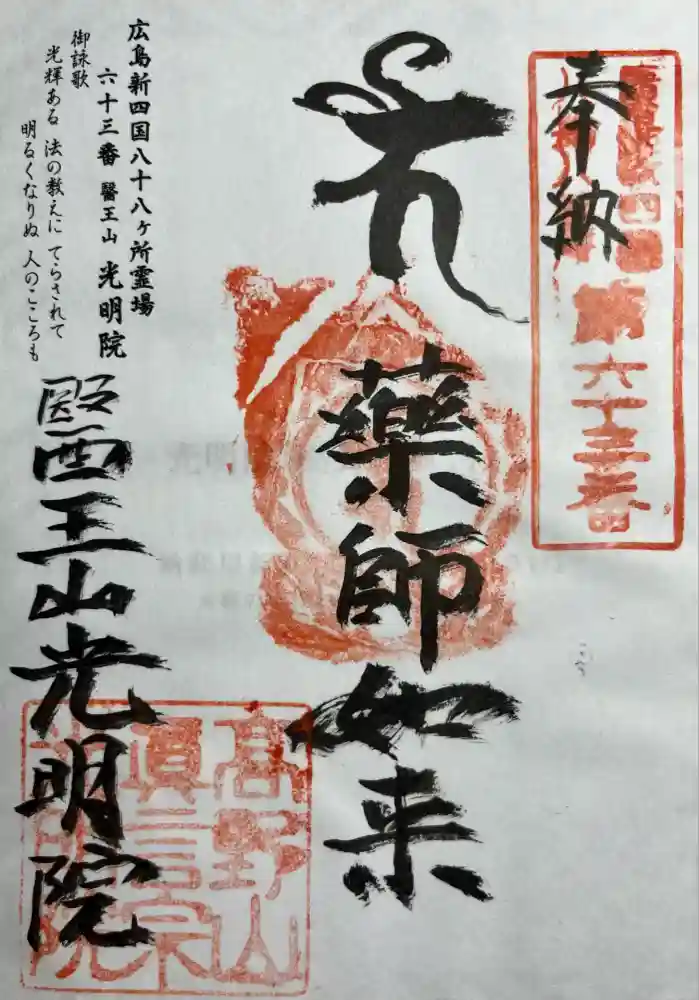 奉納
廣島新四國
第六十三番
藥師如来
広島新四国八十八ヶ所霊場
六十三番 醫王山 光明院
御詠歌
光輝ある 法の教えに てらされて
明るくなりぬ 人のこころも
醫王山光明院
高野山
真言宗
光明院